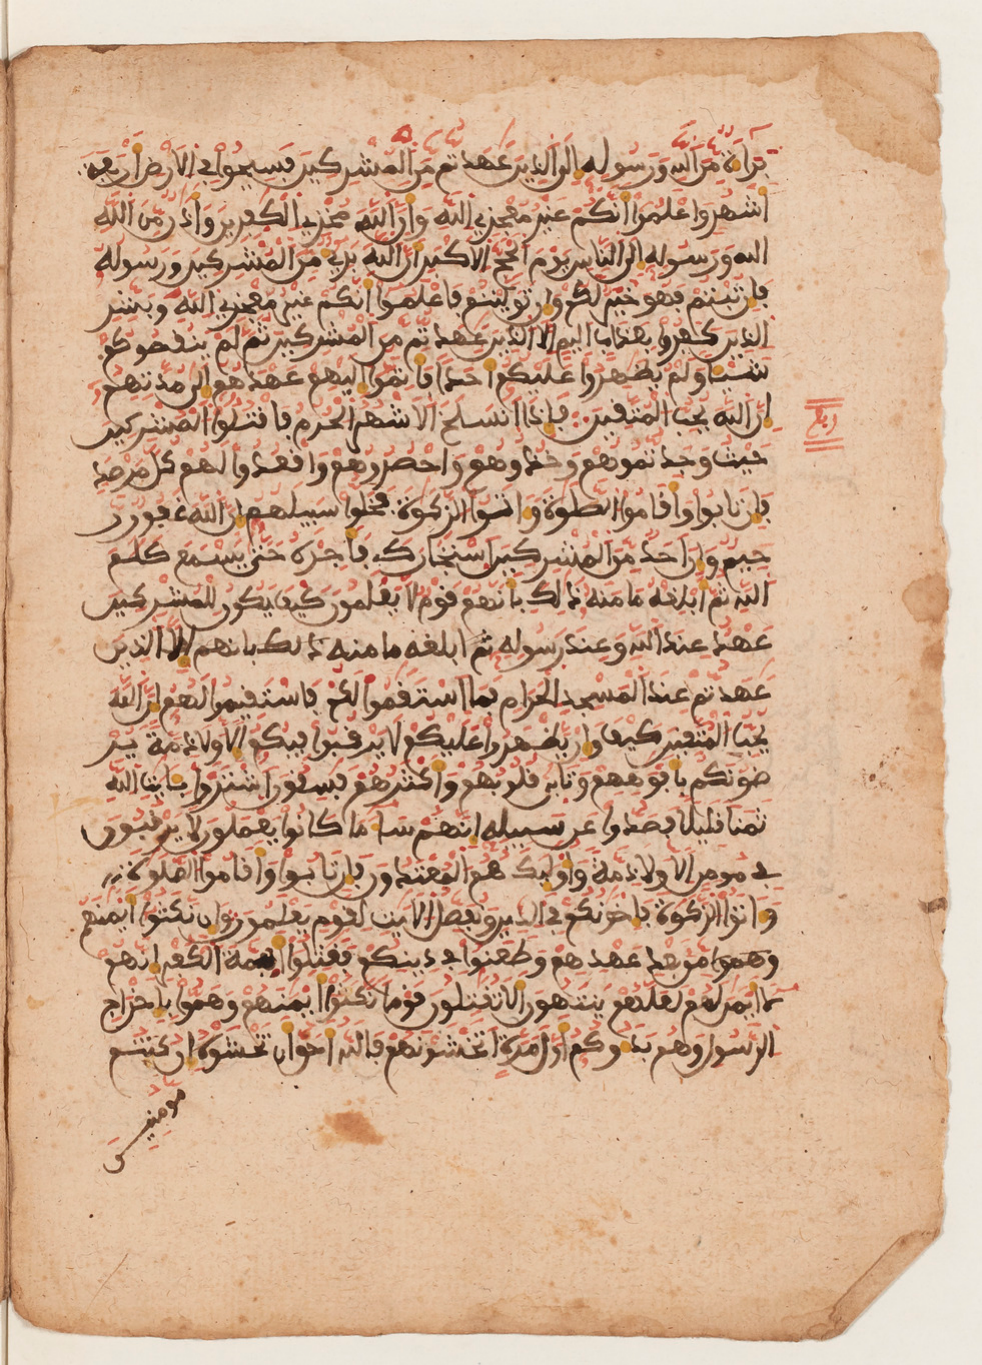 براة من الله ورسوله الى الذين عهدتم من المشركين فسيحوا في الارض اربعة
اشهر واعلموا انكم غير معجزي الله وان الله مخزي الكفرين واذن من الله
الله ورسوله الى الناس يوم الحج الاكبر ان الله بري من المشركين ورسوله
فان تبتم فهو خير لكم وان توليتم فاعلموا انكم غير معجزي الله وبشر
الذين كفروا بعذاب اليم الا الذين عهدتم من المشركين ثم لم ينقصوكم
شيئا ولم يظهروا عليكم احدا فاتموا اليهم عهدهم الى مدتهم
ان الله يحب المتقين فاذا انسلخ الاشهر الحرم فاقتلوا المشركين
ربع
حيث وجدتموهم وخذوهم واحصروهم واقعدوا لهم كل مرصد
فان تابوا واقاموا الصلوة واتوا الزكوة فخلوا سبيلهم ان الله غفور ر
حيم وان احد من المشركين استجارك فاجره حتى يسمع كلم
الله ثم ابلغه مامنه ذلك بانهم قوم لا يعلمون كيف يكون للمشركين
عهد عند الله وعند رسوله ثم ابلغه مامنه ذلك بانهم الا الذين
عهدتم عند المسجد الحرام فما استقموا لكم فاستقيموا لهم ان الله
يحب المتقين كيف وان يظهروا عليكم لا يرقبوا فيكم الا ولا ذمة ير
ضونكم بافوههم وتابى قلوبهم واكثرهم فسقون اشتروا بايت الله
ثمنا قليلا فصدوا عن سبيله انهم سا ما كانوا يعملون لا يرقبون
في مومن الا ولا ذمة واوليك هم المعتدون فان تابوا واقاموا الصلوة
واتوا الزكوة فاخونكم في الدين ونفصل الايت لقوم يعلمون وان نكثوا ايمنهم
من بعد عهدهم وطعنوا في دينكم فقتلوا ايمة الكفر انهم
لا ايمن لهم لعلهم ينتهون الا تقتلون قوما نكثوا ايمنهم وهموا باخراج
الرسول وهم بدوكم اول مرة اتخشونهم فالله احق ان تخشوه ان كنتم
مومنين